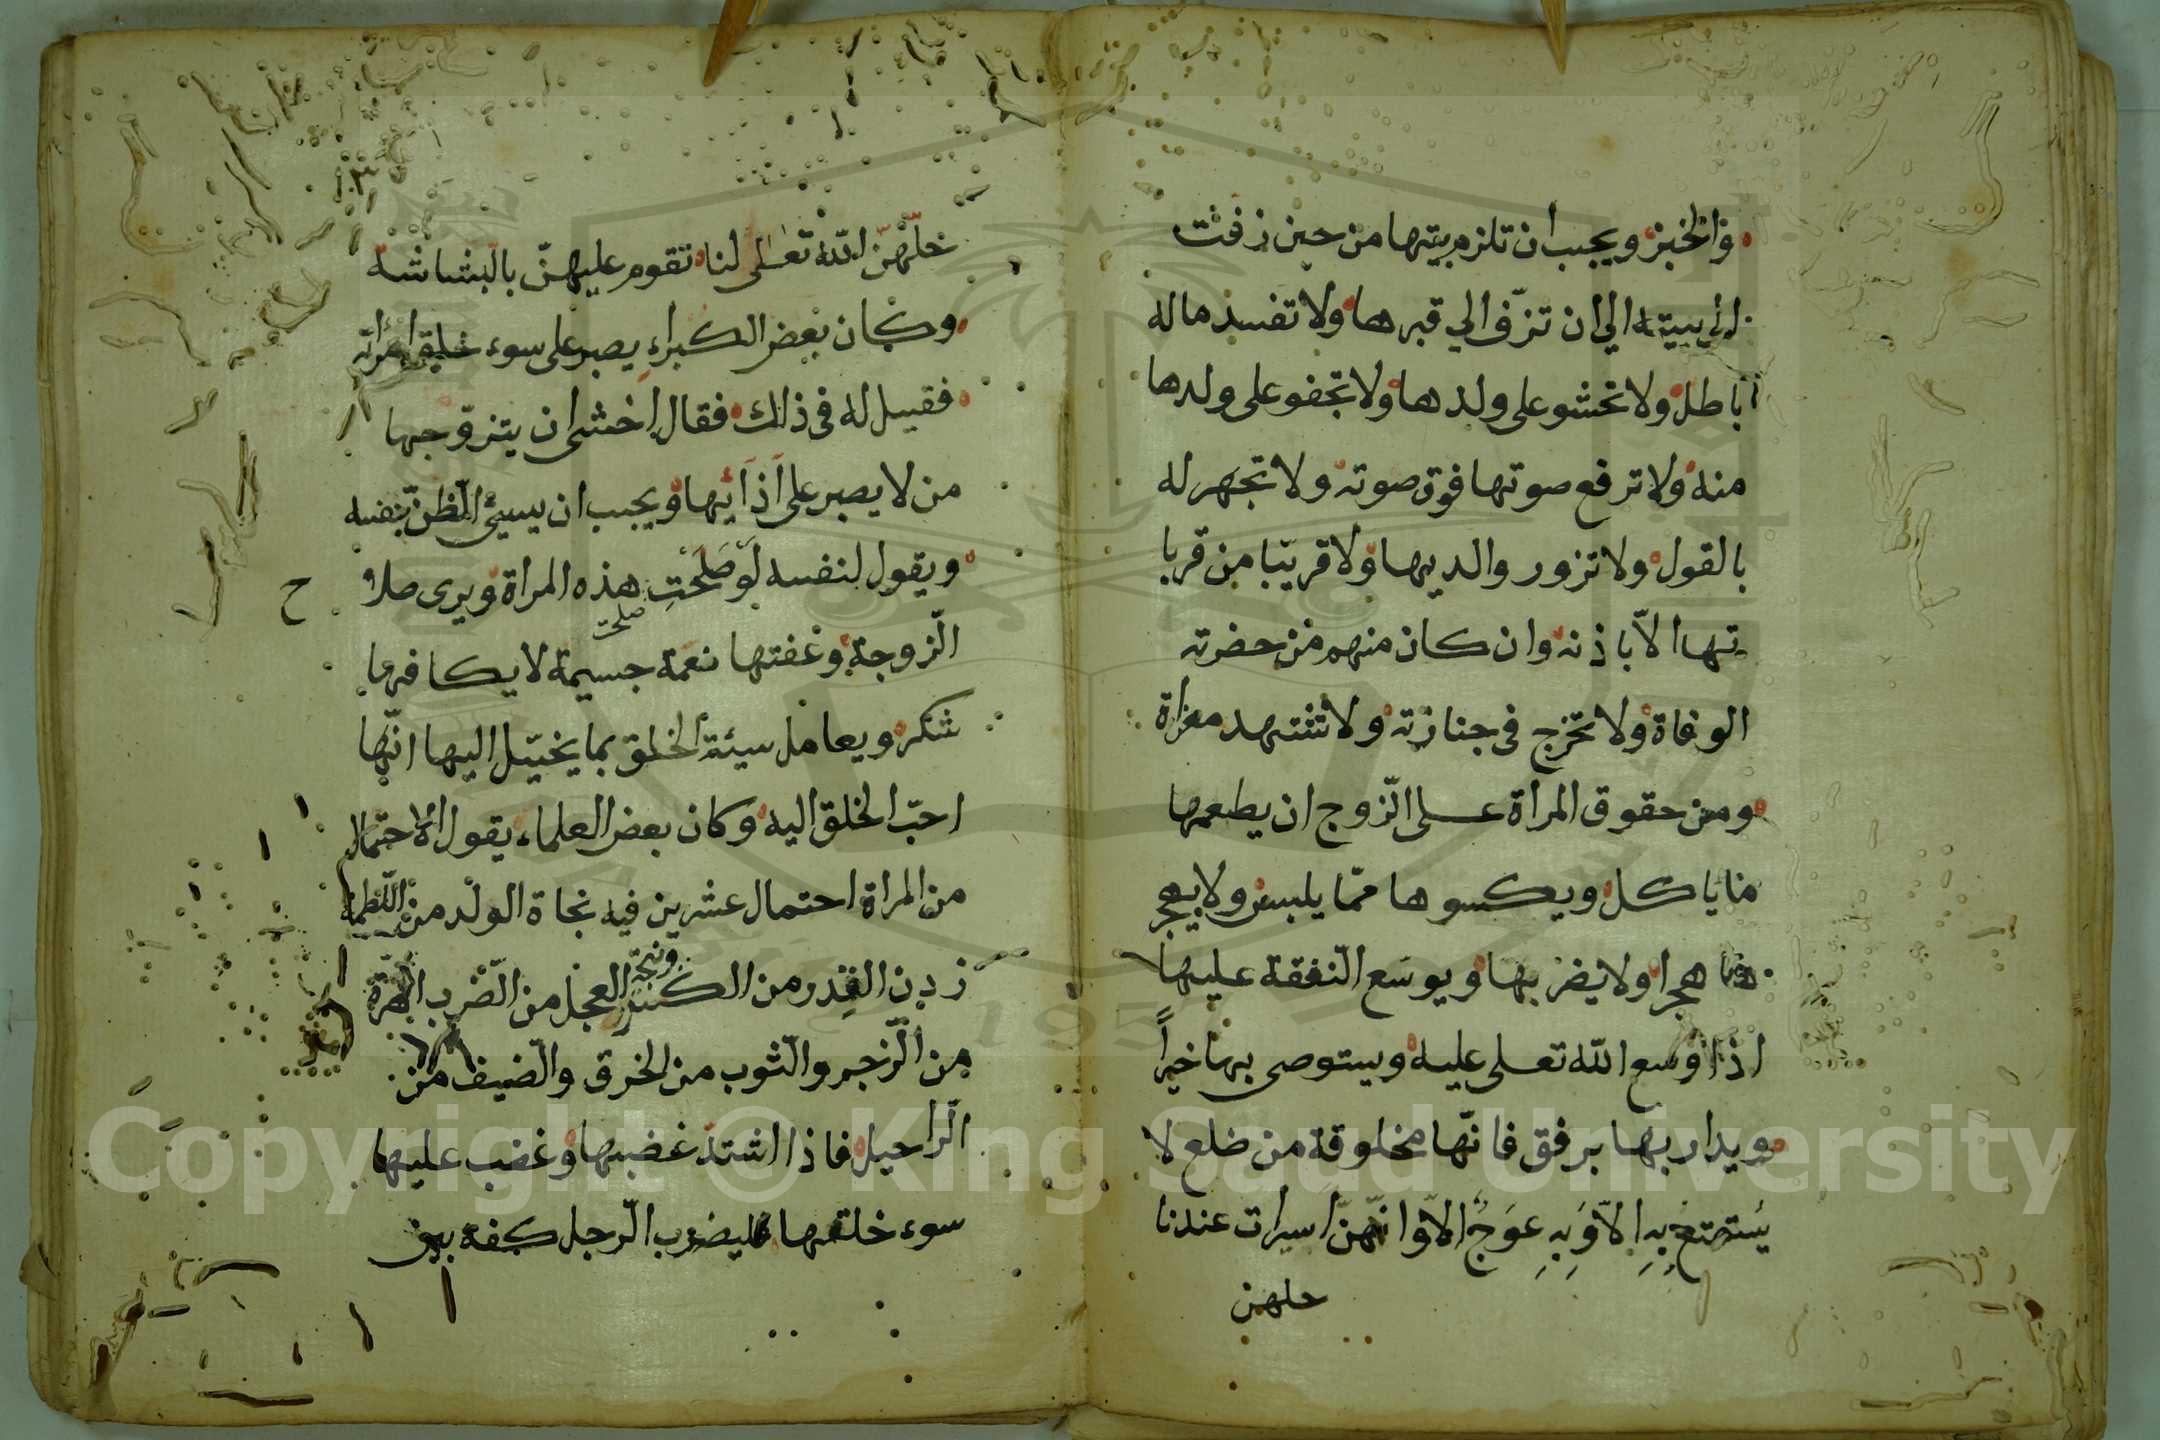 والخبز ويجب ان تلزم بيتها من حين زفت
الى بيته الي ان تزّف الي قبرها ولا تفسد ماله
باطل ولا تحشو على ولدها ولا تجفو على ولدها
منه ولا ترفع صوتها فوق صوته ولا تجهر له
بالقول ولا تزور والديها ولا قريبا من قربا
تها الاّ باذنه وان كان منهم من حضرته
الوفاة ولا تخرج فى جنازته ولا تشهد معزاة
ومن حقوق المراة على الزّوج ان يطعمها
مما ياكل ويكسوها ممّا يلبس ولا يهجر
هما هجرا ولا يضربها ويوسع النّفقة عليها
اذا وسع اللّه تعلى عليه ويستوصى بها خيراً
ويدار بها برفق فانّها مخلوقة من ضلع لا
يستمتع بِهِ الاّ وَبِهِ عوَجٌ الاّ وانّهنّ اسيرات عندنا
حلهن
خلّهنّ اللّه تعالى لنا تقوم عليهنّ بالبشاشة
وكان بعض الكبراء يصبر على سوء خلق امرأته
فقيل له فى ذلك فقال اخشى ان يتزوّجها
من لا يصبر على اذائها ويجب ان يسيئ الظنّ بنفسه
ويقول لنفسه لَوْ صَلَحْتِ هذه المراة ويرى صلا
ح
صلحت
الزّوجة وعفتها نعمة جسيمة لا يكافيها
شكر ويعامل سيئة الخلق بما يخيّل اليها انّها
احبّ الخلق اليه وكان بعض العلماء يقول الاحتمال
من المراة احتمال عشرين فيه نجاة الولد من اللّطمة
ونجاة
القدر من الكسر العجل من الضّرب الهرّة
من الزّجر والثّوب من الخرق والضّيف من
الرّاحيل فاذا اشتدّ غضبها وغضب عليها
سوء خلقها فليضرب الرّجل كفه بين
Copyright © King Saud University